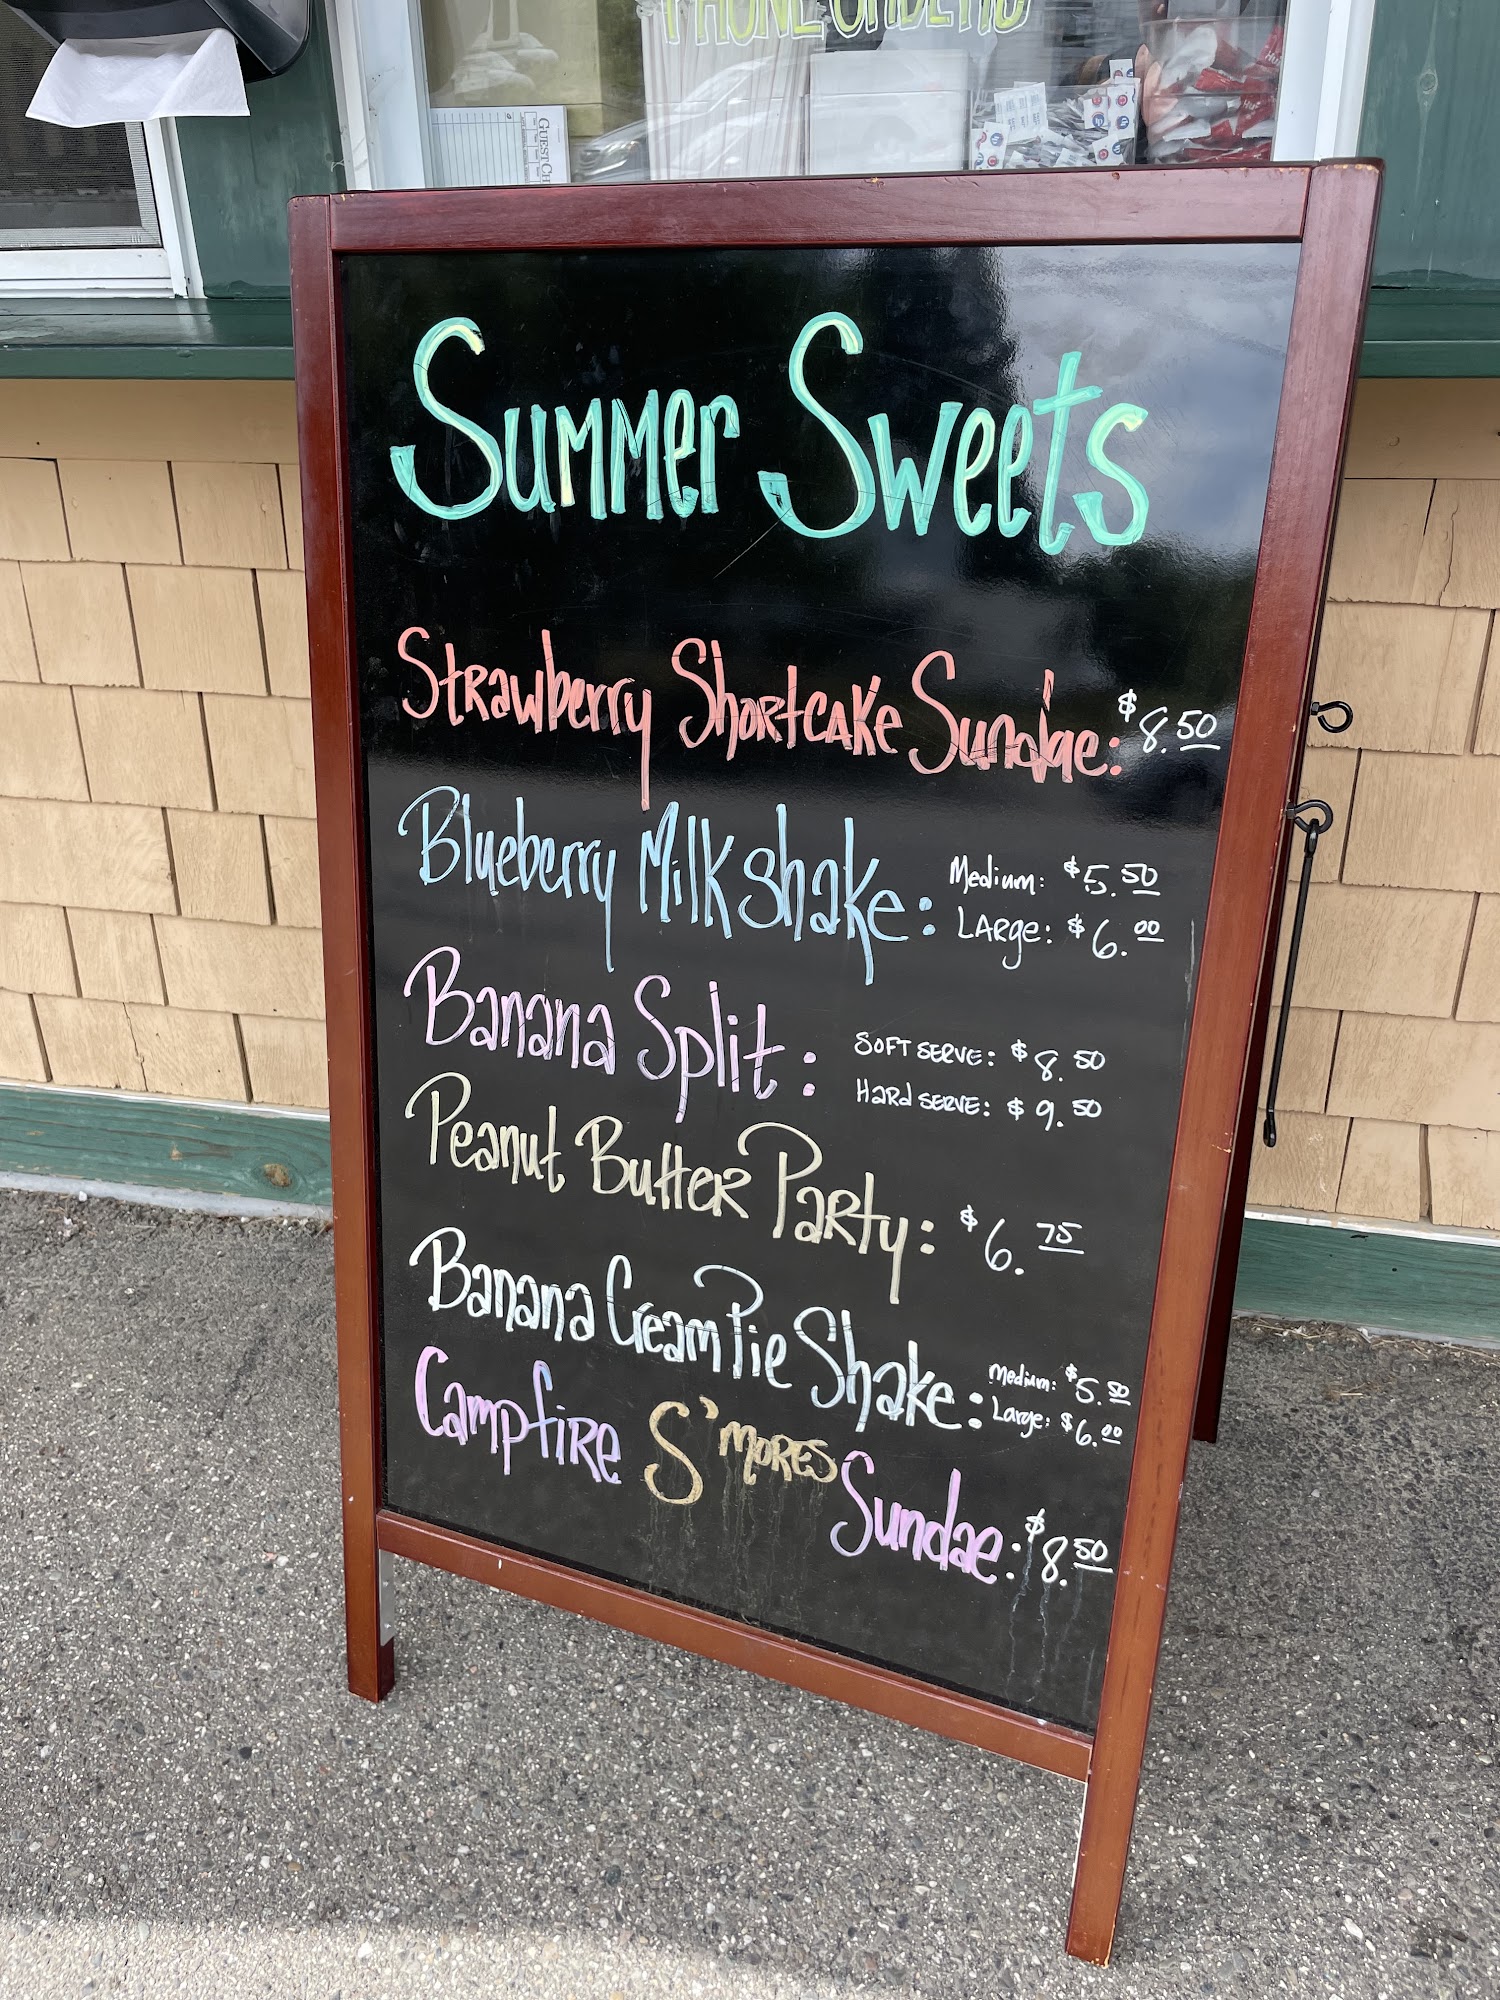 PHONE ORDERS
GUEST CH
Summer Sweets
Strawberry Shortcake Sundae: $8.50
Blueberry Milkshake: Medium: $5.50
Large: $6.00
Banana Split: Soft Serve: $8.50
Hard Serve: $9.50
Peanut Butter Party: $6.75
Banana Cream Pie Shake: Medium: $5.50
Large: $6.00
Campfire S'mores
Sundae: $8.50